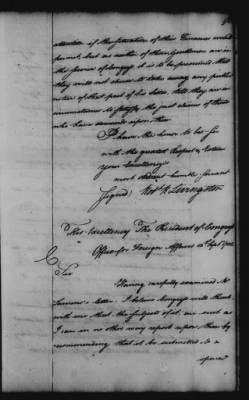 attention of the
permit, but as neither of these Gentlemen are in
the service of Congress it is to be presumed that
they will not themselves take away any further
notice of that part of his letter till they are
to satisfy the just claims of those
who have demands upon them.
I have the honor to be Sir
with the greatest Respect & Esteem
your Excellency's
most obedient humble servant
Signed, Robt R Livingston
His Excellency The President of Congress
Office for Foreign Affairs
Sir
Having carefully examined Mr
letter. I believe Congress will think
with me that the subjects of it are such as
I can in no other way report upon than by
recommending that it be submitted to a
special